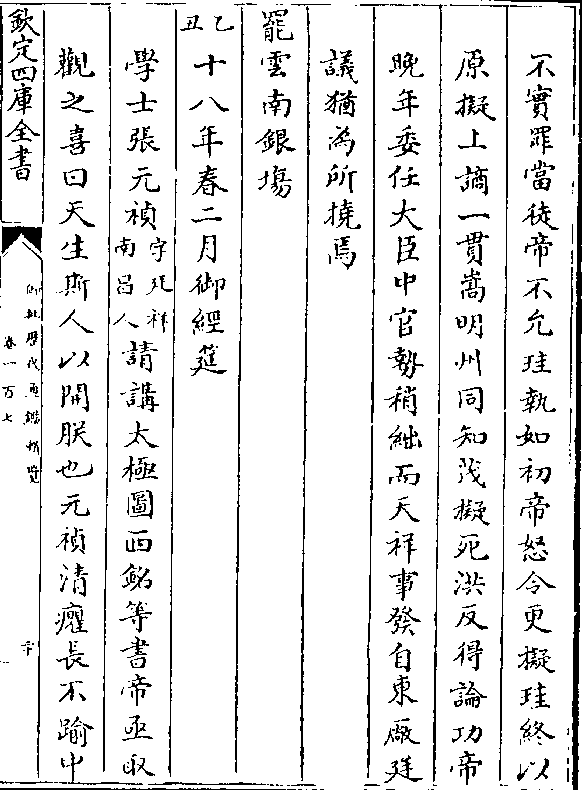 不實罪當徒帝不允珪執如初帝怒令更擬珪終以
原擬上謫一貫嵩明州同知茂擬死洪反得論功帝
晚年委任大臣中官勢稍絀而天祥事發自東厰廷
議猶為所撓焉
罷雲南銀塲
乙丑
十八年春二月御經筵
學士張元禎字廷祥南昌人請講太極圖西銘等書帝亟取
觀之喜曰天生斯人以開朕也元禎清癯長不踰中
欽定四庫全書
御批歷代通鑑輯覽
卷一百七